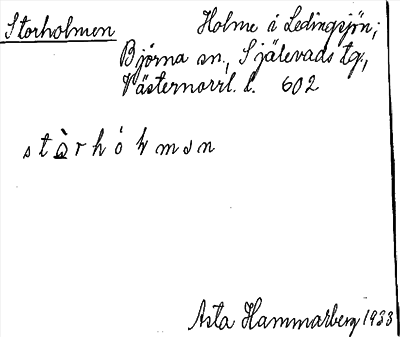 Storholmen Holme i Ledingsjön;
Björna sn., Själevads tg.,
Västernorrl. l. 602
Asta Hammarberg 1933